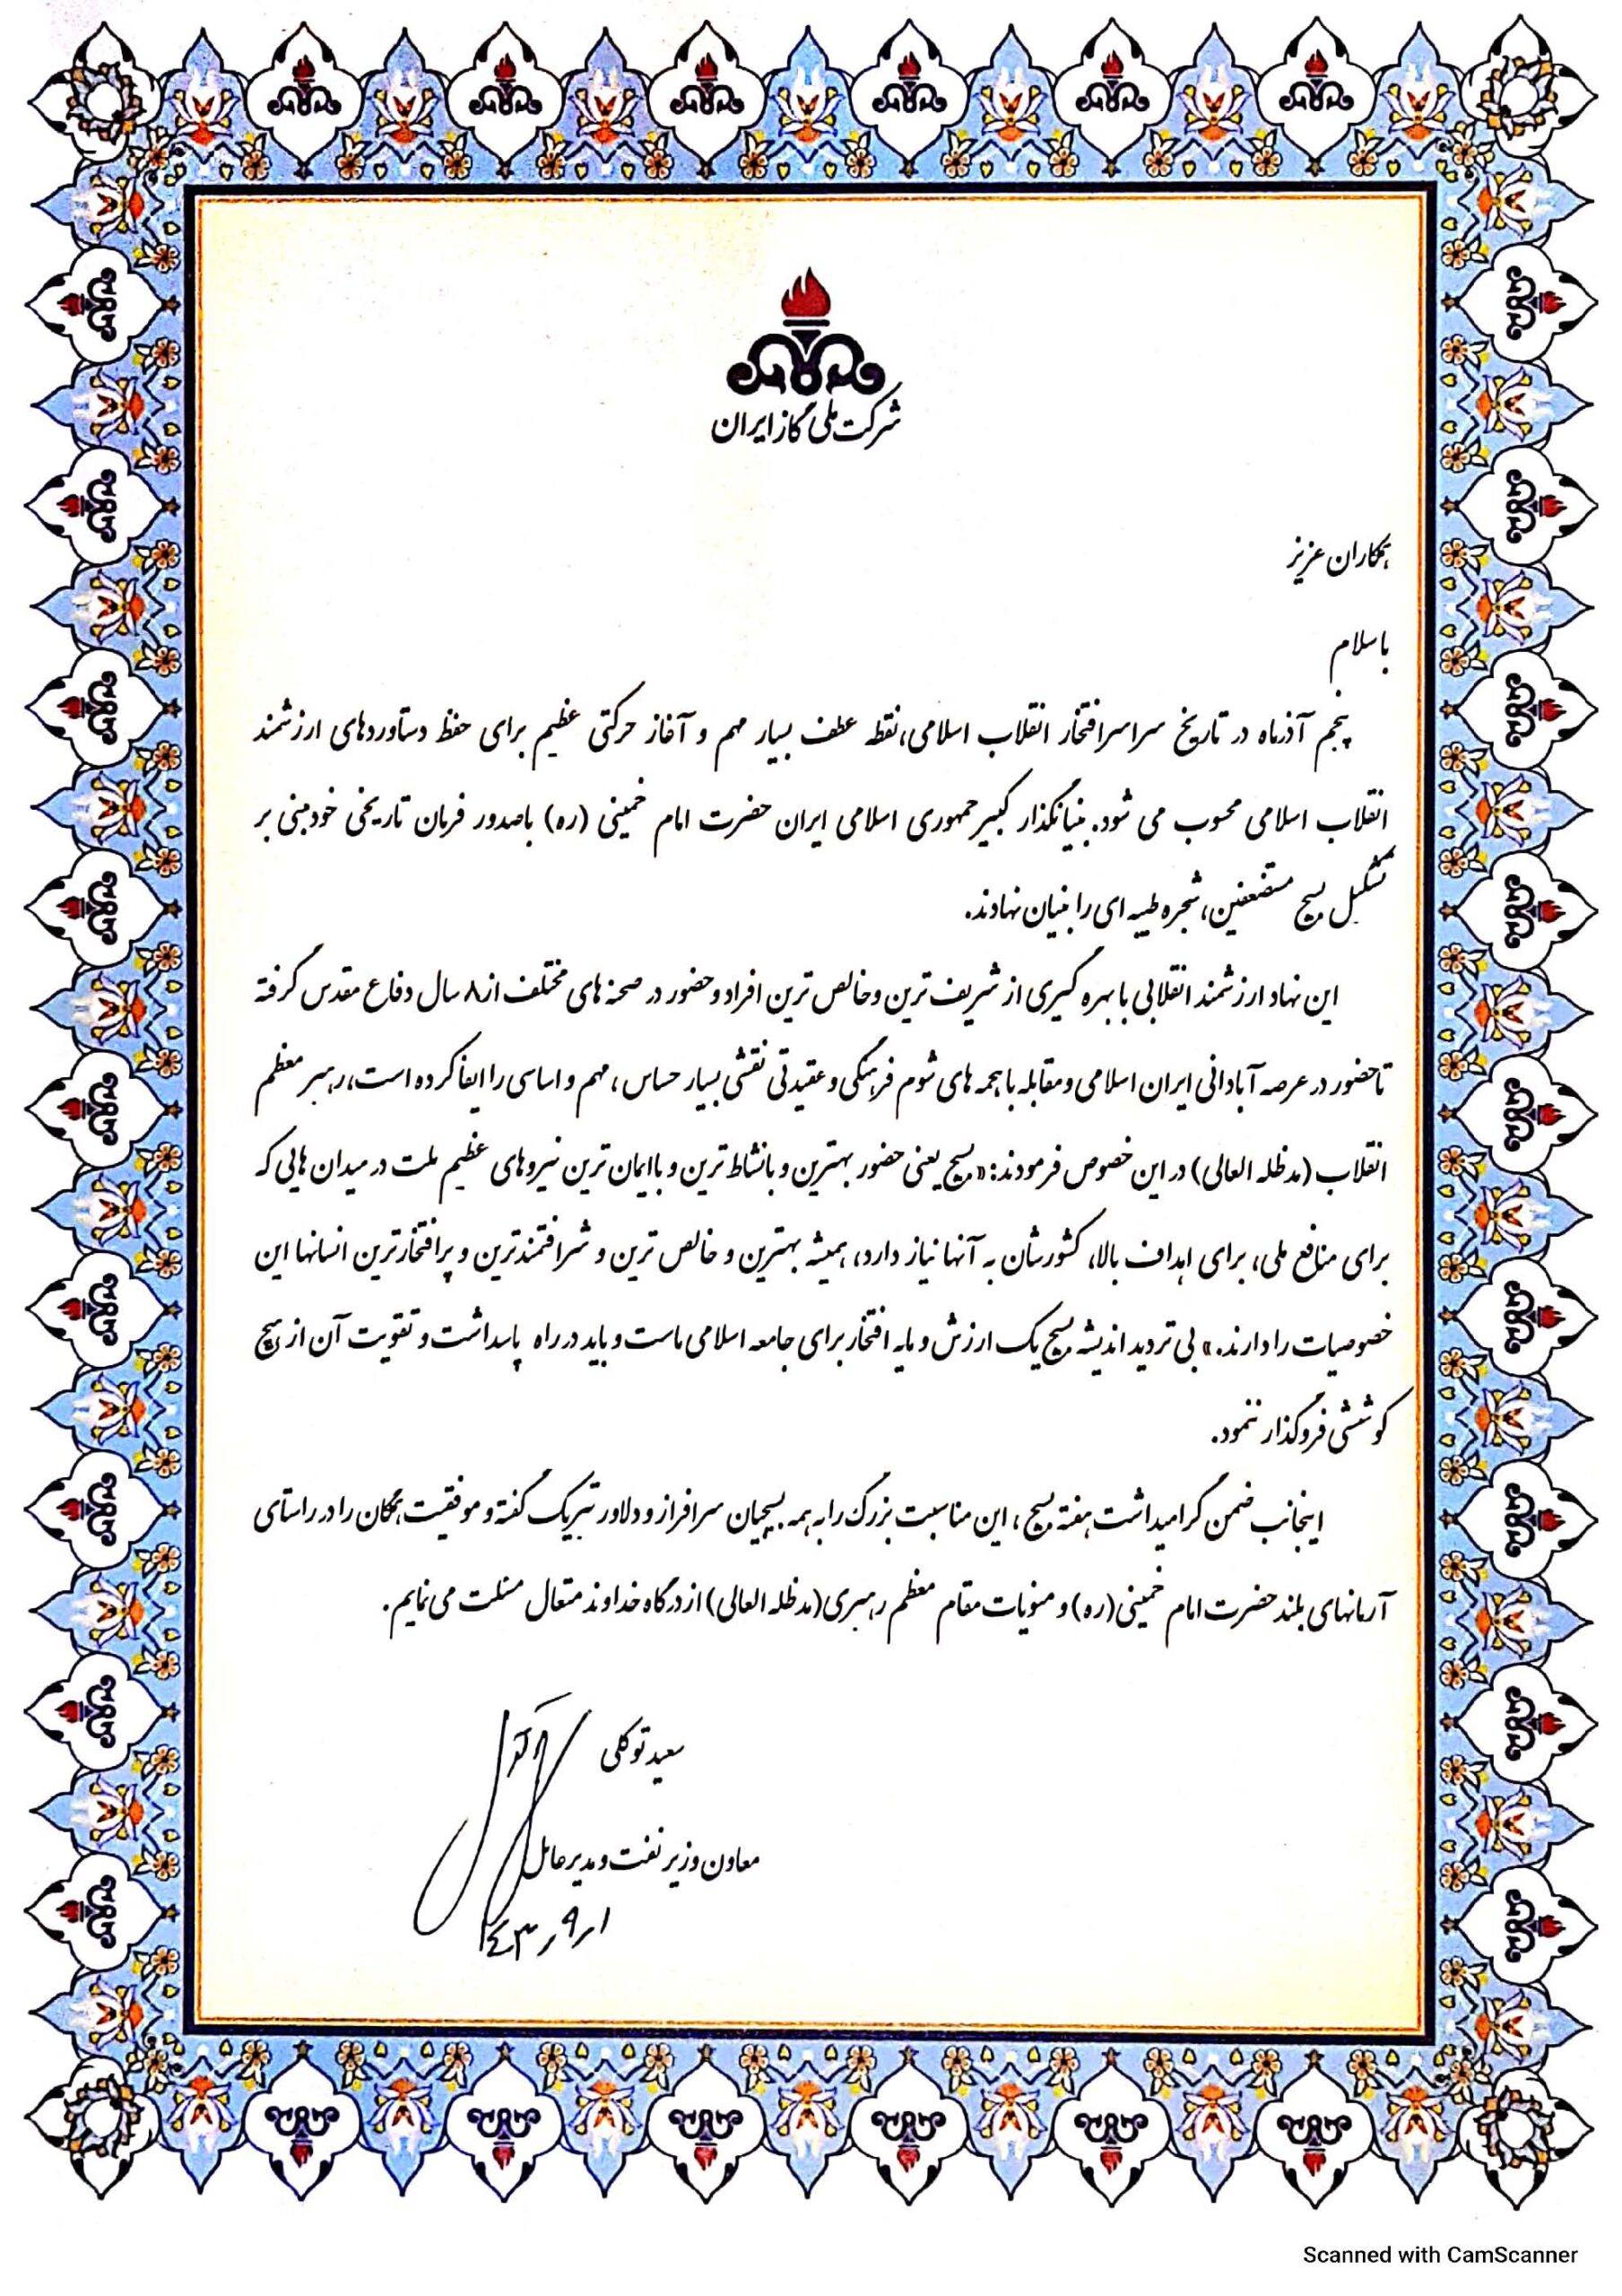 شرکت ملی گاز ایران
همکاران عزیز
با سلام
پنجم آذرماه در تاریخ سراسر افتخار انقلاب اسلامی، نقطه عطف بسیار مهم و آغاز حرکتی عظیم برای حفظ دستاوردهای ارزشمند
انقلاب اسلامی محسوب می شود. بنیانگذار کبیر جمهوری اسلامی ایران حضرت امام خمینی (ره) با صدور فرمان تاریخی خود مبنی بر
تشکیل بسیج مستضعفین، شجره طیبه ای را بنیان نهادند.
این نهاد ارزشمند انقلابی با بهره گیری از شریف ترین و خالص ترین افراد و حضور در صحنه های مختلف از ۸ سال دفاع مقدس گرفته
تا حضور در عرصه آبادانی ایران اسلامی و مقابله با هجمه های شوم فرهنگی و عقیدتی نقشی بسیار حساس، مهم و اساسی را ایفا کرده است، رهبر معظم
انقلاب (مدظله العالی) در این خصوص فرمودند: «بسیج یعنی حضور بهترین و بانشاط ترین و باایمان ترین نیروهای عظیم ملت در میدان هایی که
برای منافع ملی، برای اهداف بالا، کشورشان به آنها نیاز دارد، همیشه بهترین و خالص ترین و شرافتمندترین و پرافتخارترین انسانها این
خصوصیات را دارند.» بی تردید اندیشه بسیج یک ارزش و مایه افتخار برای جامعه اسلامی ماست و باید در راه پاسداشت و تقویت آن از هیچ
کوششی فروگذار ننمود.
اینجانب ضمن گرامیداشت هفته بسیج، این مناسبت بزرگ را به همه بسیجیان سرافراز و دلاور تبریک گفته و موفقیت همگان را در راستای
آرمانهای بلند حضرت امام خمینی (ره) و منویات مقام معظم رهبری (مدظله العالی) از درگاه خداوند متعال مسئلت می نمایم.
سعید توکلی
معاون وزیر نفت و مدیرعامل
۱۴۰۳ر۹ر۱
Scanned with CamScanner